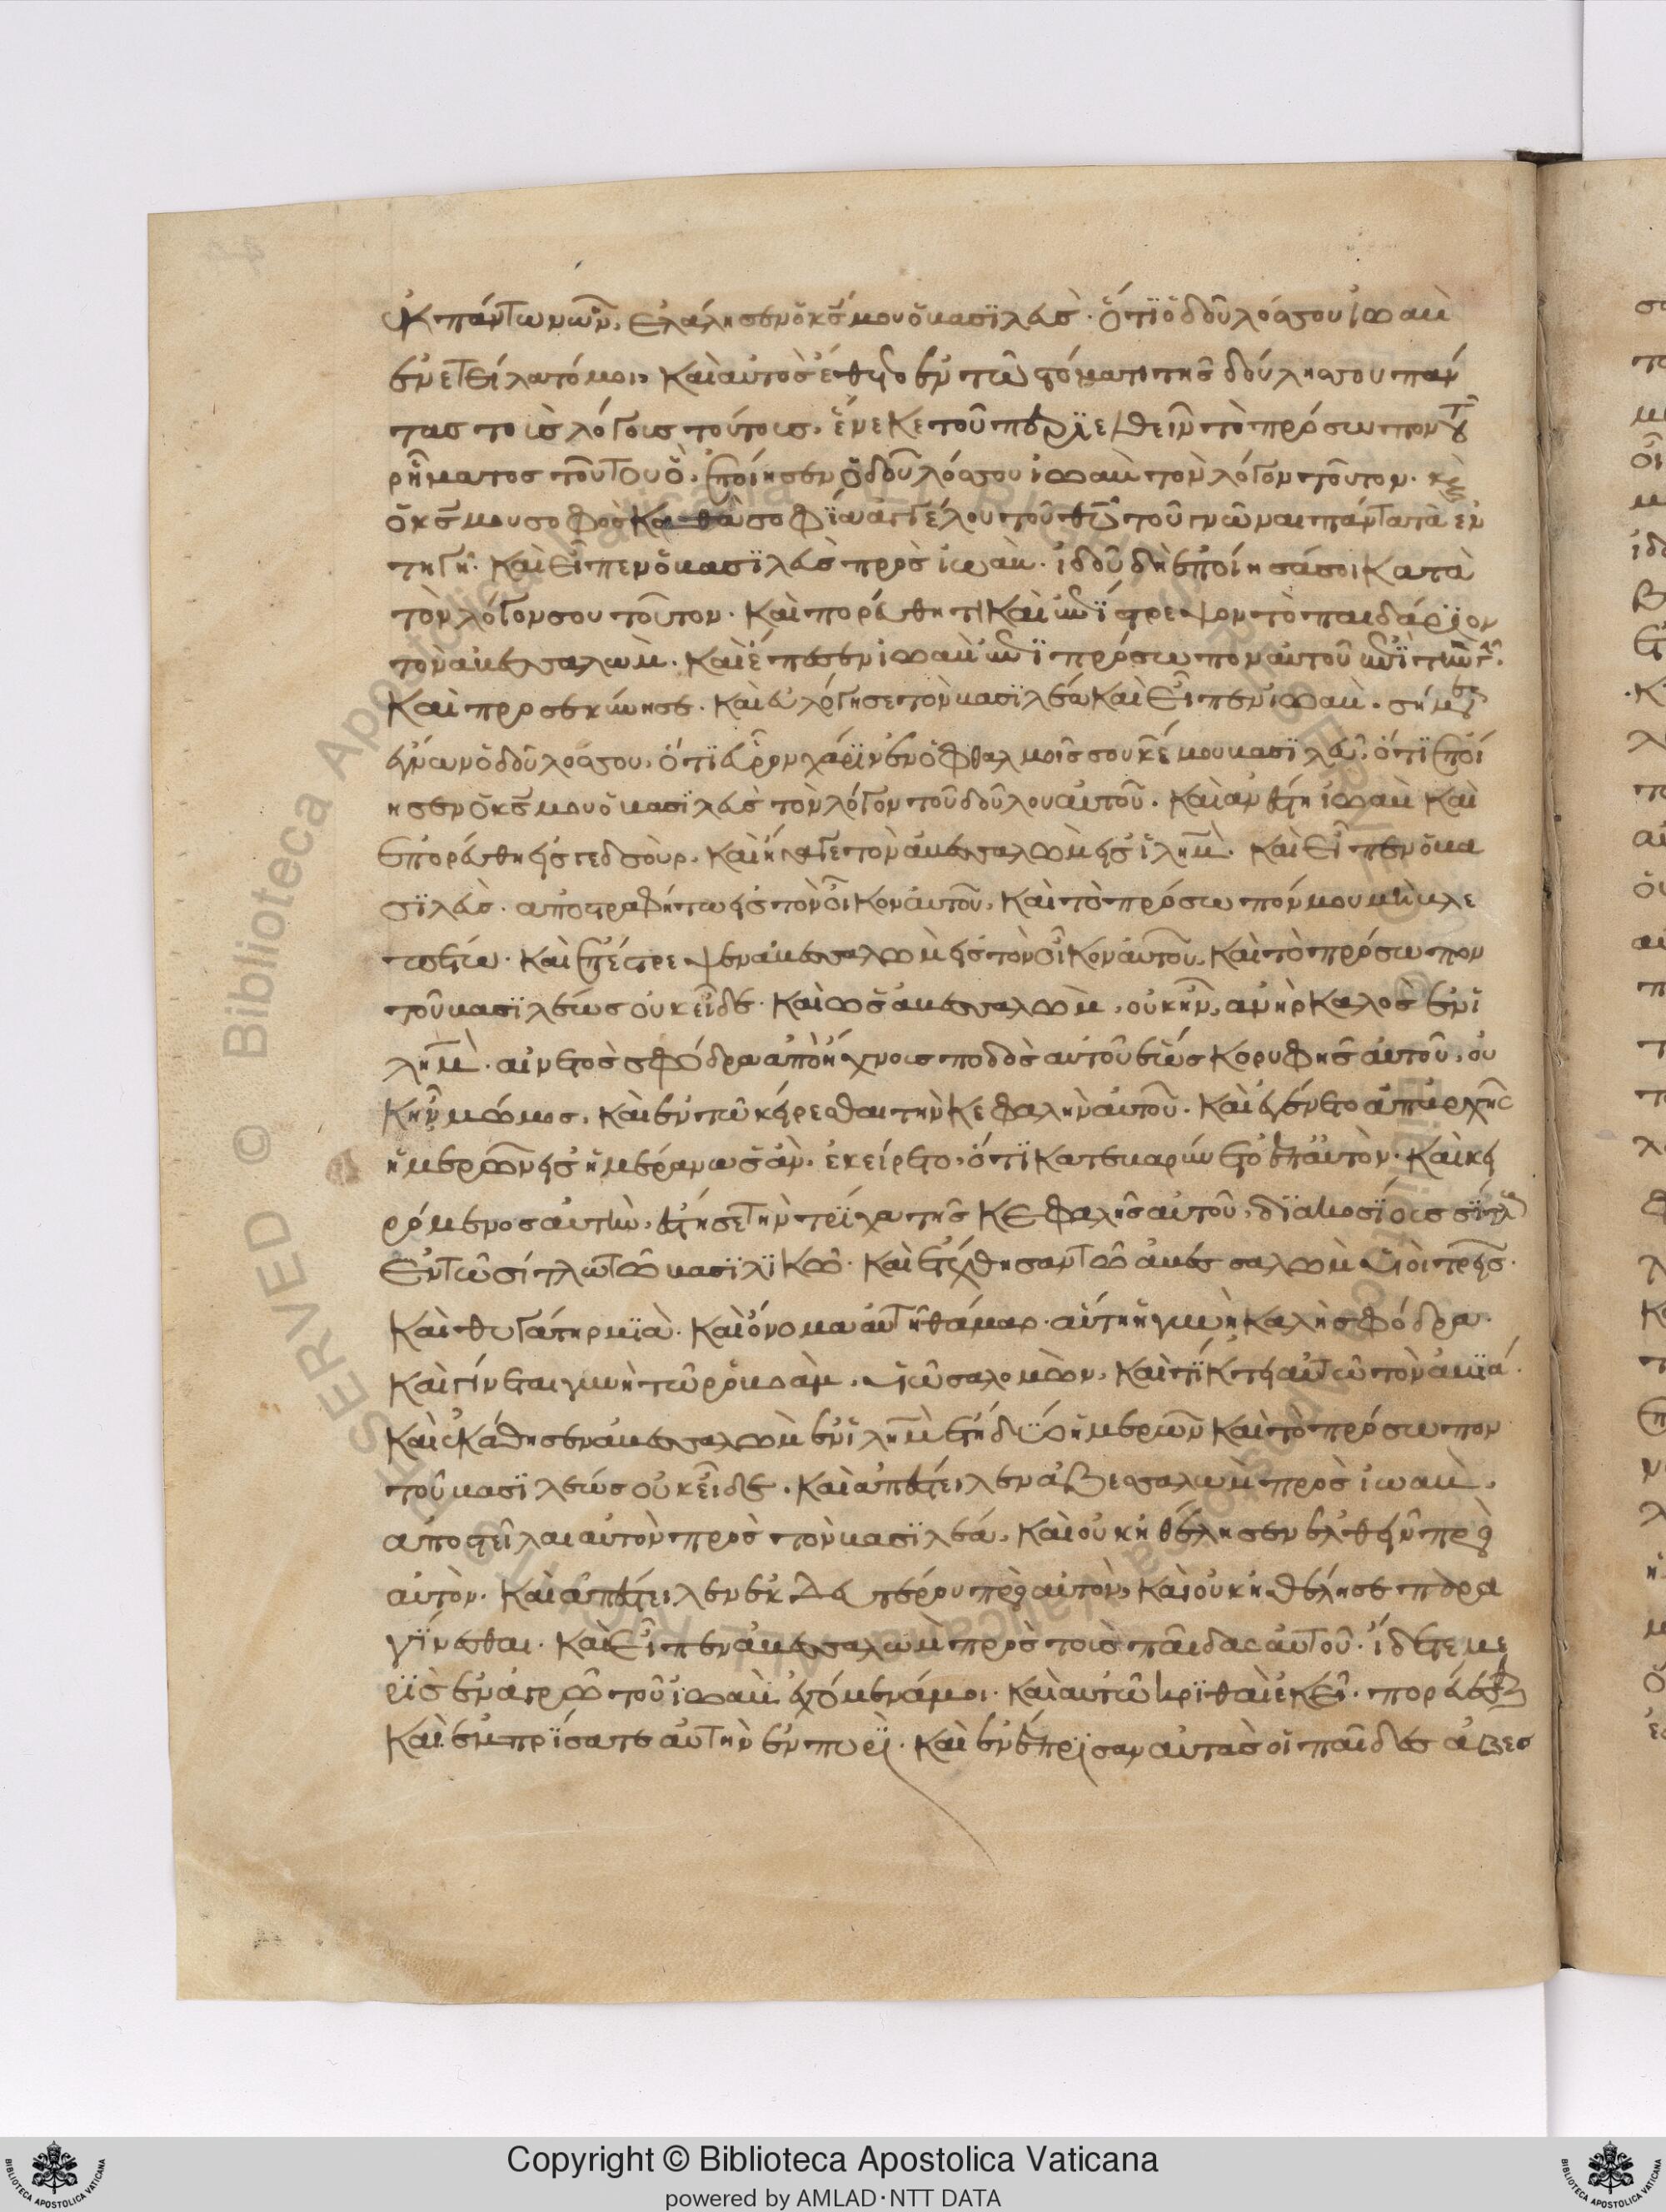 ἐκ πάντων ὧν ἐλάλησεν ὁ κς μου ὁ βασϊλεὺς. ὅτϊ ὁ δοῦλός σου ἰωαὺ
ἐνετείλατό μοι, καὶ αὐτὸς ἔθετο ἐν τῶ στόματι τῆς δούλης σου πάν
τας τοὺς λόγους τούτους, ἕνεκε τοῦ περϊελθεῖν τὸ πρόσωπον τοῦ
ῥήματος τούτου ὃ, ἐποίησεν ὁ δοῦλός σου ἰωαὺ τὸν λόγον τοῦτον. καὶ
ὁ κς μου σοφὸς καθὼς σοφία ἀγγέλου τοῦ θῦ τοῦ γνῶναι πάντα τὰ ἐν
τῆ γῆ. καὶ εἶπεν ὁ βασϊλεὺς πρὸς ἰωαὺ. ἰδοῦ δὴ ἐποίησά σοι κατὰ
τὸν λόγον σου τοῦτον. καὶ πορεύθητι καὶ ἐπϊστρεψον τὸ παιδάρϊον
τὸν ἀβεσσαλωμ. καὶ ἔπεσεν ἰωαὺ ἐπϊ πρόσωπον αὐτοῦ ἐπϊ τὴν γῆν.
καὶ προσεκύνησε. καὶ εὐλόγησε τὸν βασϊλέα καὶ εἶπεν ἰωαὺ. σήμε
ἔγνων ὁ δοῦλός σου, ὅτϊ εὗρον χάρϊν ἐν ὀφθαλμοῖς σου κέ μου βασϊλεῦ, ὅτϊ ἐποί
ησεν ὁ κς μου ὁ βασϊλεὺς τὸν λόγον τοῦ δούλου αὐτοῦ. καὶ ἀνέστη ἰωαὺ καὶ
ἐπορεύθη εἰς γεδσοὺρ, καὶ ἤγαγε τὸν ἀβεσσαλωμ εἰς ἰλημ. καὶ εἶπεν ὁ βα
σϊλεὺς. ἀποστραφήτω εἰς τὸν οἶκον αὐτοῦ, καὶ τὸ πρόσωπόν μου μὴ βλε
πέτω. καὶ ἐπέστρεψεν ἀβεσσαλωμ εἰς τὸν οἶκον αὐτοῦ, καὶ τὸ πρόσωπον
τοῦ βασϊλέως οὐκ εἶδε. καὶ ὡς ἀβεσσαλωμ, οὐκ ἦν, ἀνὴρ καλὸς ἐν ἰ
λημ. αἰνετὸς σφόδρα ἀπὸ ἤχνους ποδὸς αὐτοῦ ἕως κορυφῆς αὐτοῦ, οὐ
κ ἦν μωμος, καὶ ἐν τῶ κείρεσθαι τὴν κεφαλὴν αὐτοῦ. καὶ ἐγένετο ἀπ ἀρχῆς
ἡμερῶν εἰς ἡμέραν ὡς ἀν, ἐκείρετο, ὅτϊ κατεβαρύνετο ἐπ αὐτὸν. καὶ κει
ρόμενος αὐτὴν, ἔστησε τὴν τρίχα τῆς κεφαλῆς αὐτοῦ, διακοσίους σίκλους
ἐν τῶ σίκλω τῶ βασϊλϊκῶ. καὶ ἐτέχθησαν τῶ ἀβεσσαλωμ υἱοὶ τρεῖς.
καὶ θυγάτηρ μϊὰ. καὶ ὄνομα αὐτῆ θάμαρ. αὕτη ἡ γυνὴ καλὴ σφόδρα.
καὶ γίνεται γυνὴ τῶ ῥοβοὰμ, υἱῶ σαλομῶν, καὶ τίκτει αὐτῶ τὸν ἀβϊά.
καὶ ἐκάθησεν ἀβεσσαλωμ ἐν ἰλημ ἔτη δϋο ἡμερῶν καὶ τὸ πρόσωπον
τοῦ βασϊλέως οὐκ εἶδε. καὶ ἀπέστειλεν ἀβεσσαλωμ πρὸς ἰωαὺ,
ἀποστεῖλαι αὐτὸν πρὸς τὸν βασϊλέα, καὶ οὐκ ἠθέλησεν ἐλθεῖν πρὸς
αὐτὸν. καὶ ἀπέστειλεν ἐκ δευτέρου πρὸς αὐτὸν, καὶ οὐκ ἠθέλησε παρα
γϊνέσθαι. καὶ εἶπεν ἀβεσσαλωμ πρὸς τοὺς παῖδας αὐτοῦ. ἴδετε με
ρὶς ἐν ἀγρῶ τοῦ ἰωαὺ ἐχόμενά μοι. καὶ αὐτῶ κρϊθαὶ ἐκεῖ. πορεύεσθε
καὶ ἐμπρΐσατε αὐτὴν ἐν πυρϊ. καὶ ἐνέπρησαν αὐτὰς οἱ παῖδες ἀβεσ